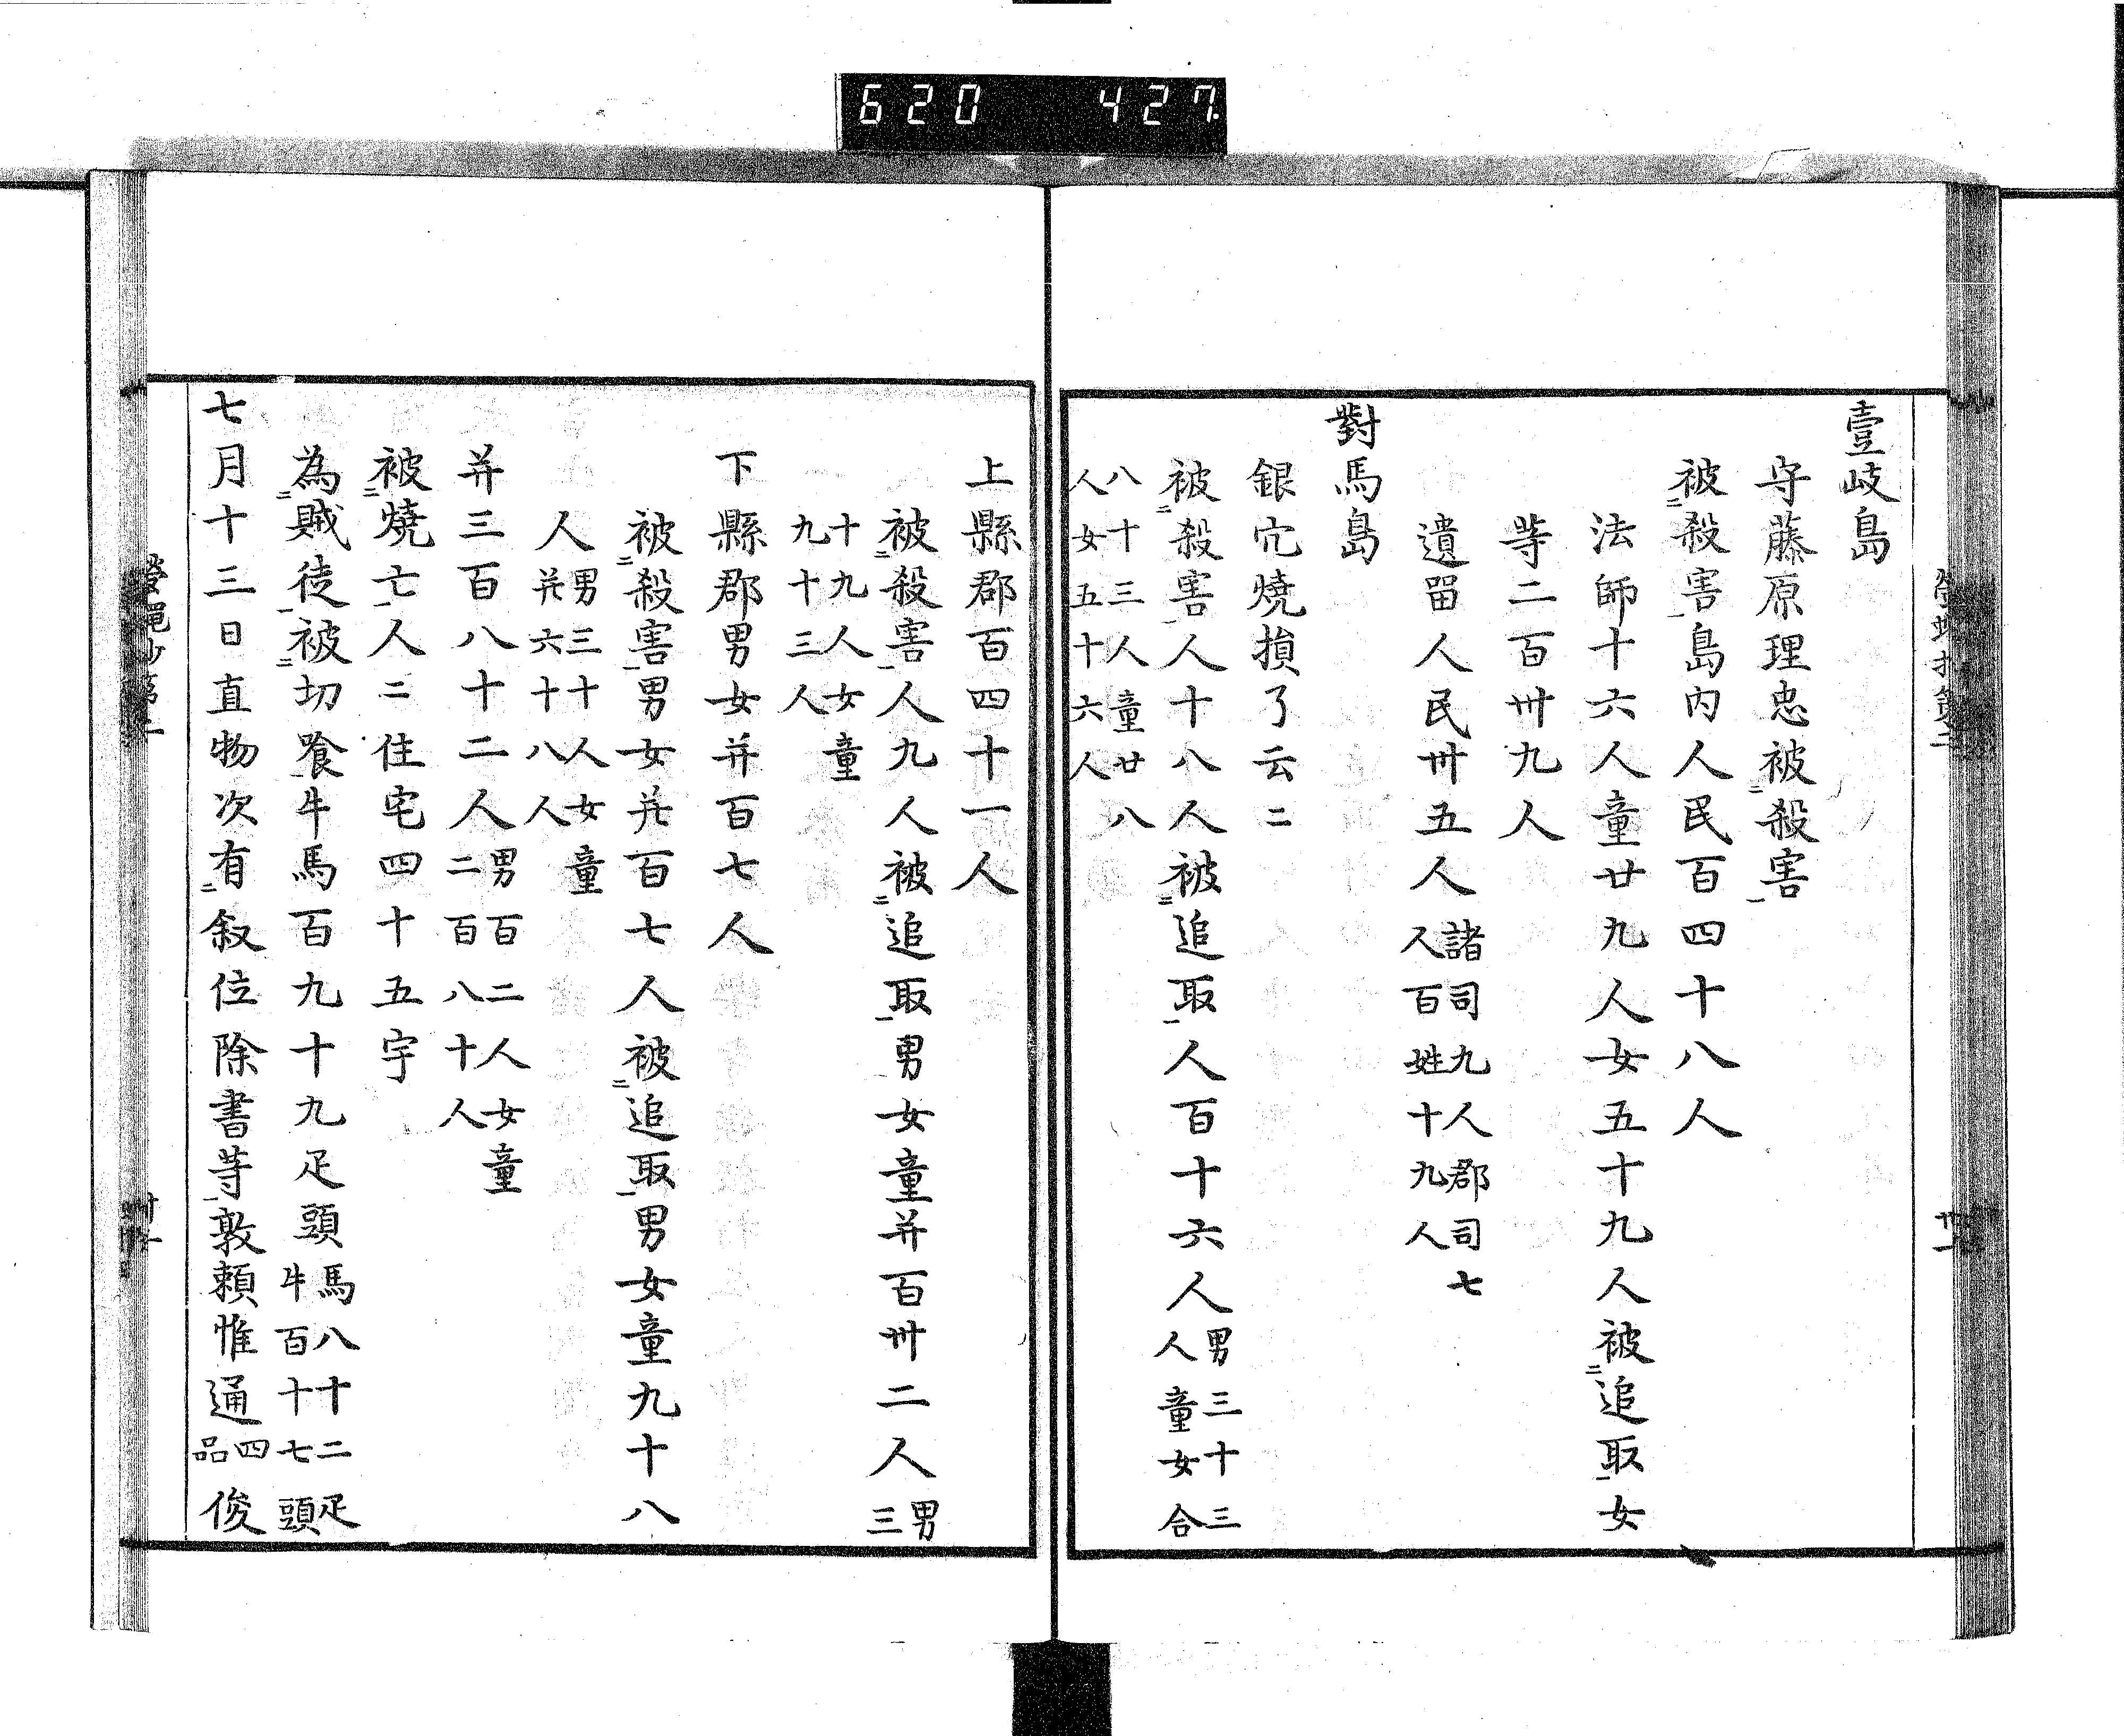 620 427
壹岐島
守藤原理忠被殺害
被殺害島内人民百四十八人
法師十六人童廿九人女五十九人被追取女
等二百卅九人
遺留人民卅五人諸司九人郡司七
人百姓十九人
對馬島
銀穴燒損了云〻
被殺害人十八人被追取人百十六人男三十三
人童女合
八十三人童廿八
人女五十六人
上縣郡百四十一人
被殺害人九人被追取男女童并百卅二人男
三
十九人女童
九十三人
下縣郡男女并百七人
被殺害男女并百七人被追取男女童九十八
人男三十人女童
并六十八人
并三百八十二人男百二人女童
二百八十人
被燒亡人〻住宅四十五宇
為賊徒被切飡牛馬百九十九疋頭馬八十二疋
牛百十七頭
七月十三日直物次有叙位除書等敦頼惟通四
品俊